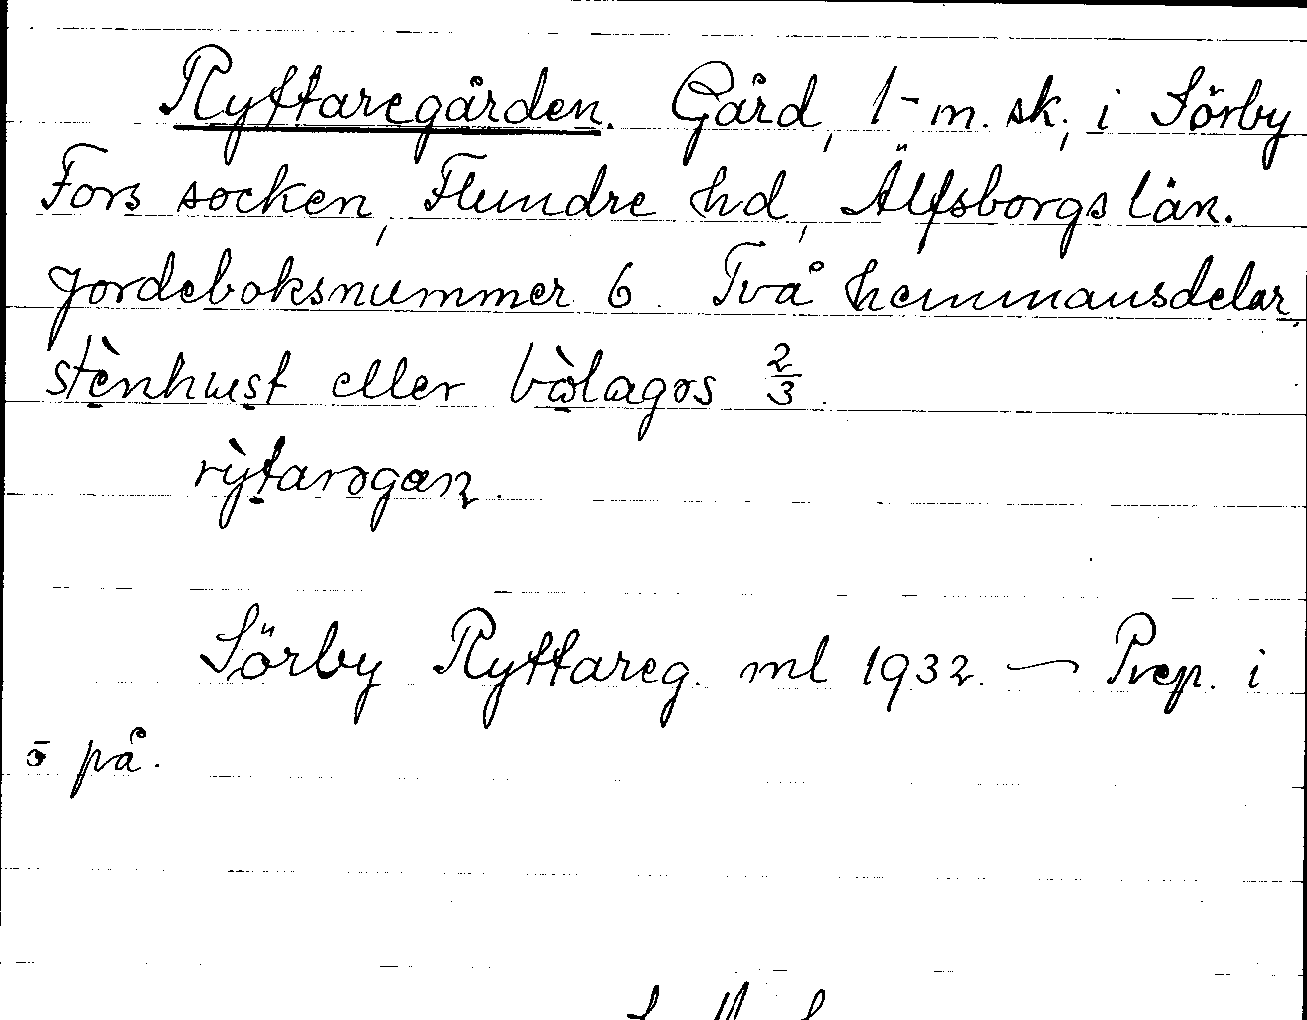 Ryttaregården. Gård, 1 m. sk., i Sörby
Fors socken, Flundre hd, Älfsborgs län.
Jordeboksnummer 6. Två hemmansdelar,
stènhust eller bòlagǝs 2/3.
rỳtarǝgaɳ.
Sörby Ryttareg. ml 1932. — Prep. i
o på.